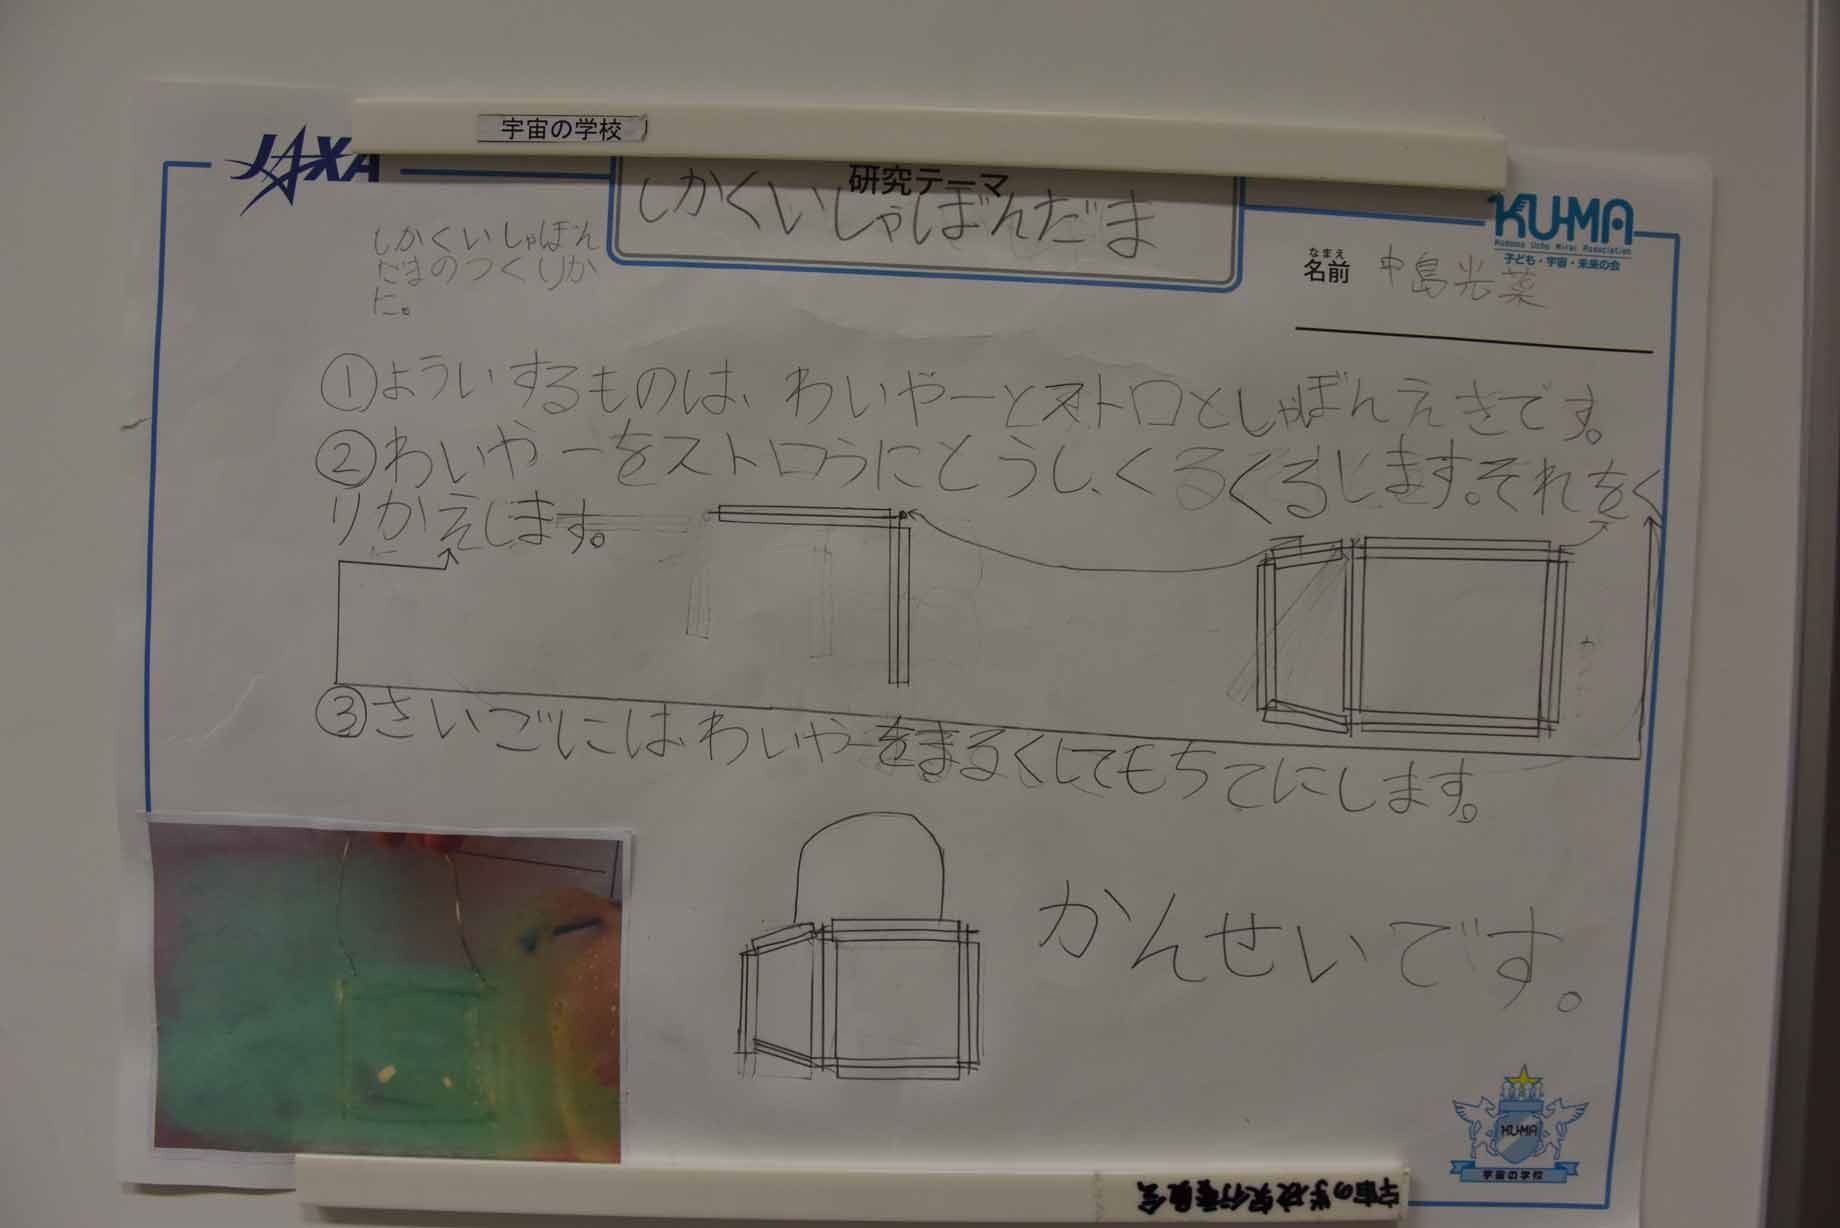 宇宙の学校
JAXA
研究テーマ
しかくいしゃぼんだま
KU-MA
Kodomo Uchu Mirai Association
子ども・宇宙・未来の会
なまえ
名前 中島光菜
しかくいしゃぼん
だまのつくりか
に。
①よういするものは、わいやーとストロとしゃぼんえきです。
②わいやーをストロうにとうし、くるくるします。それをく
りかえします。
③さいごにはわいやーをまるくしてもちてにします。
かんせいです。
KU-MA
宇宙の学校
宇宙の学校実行委員会